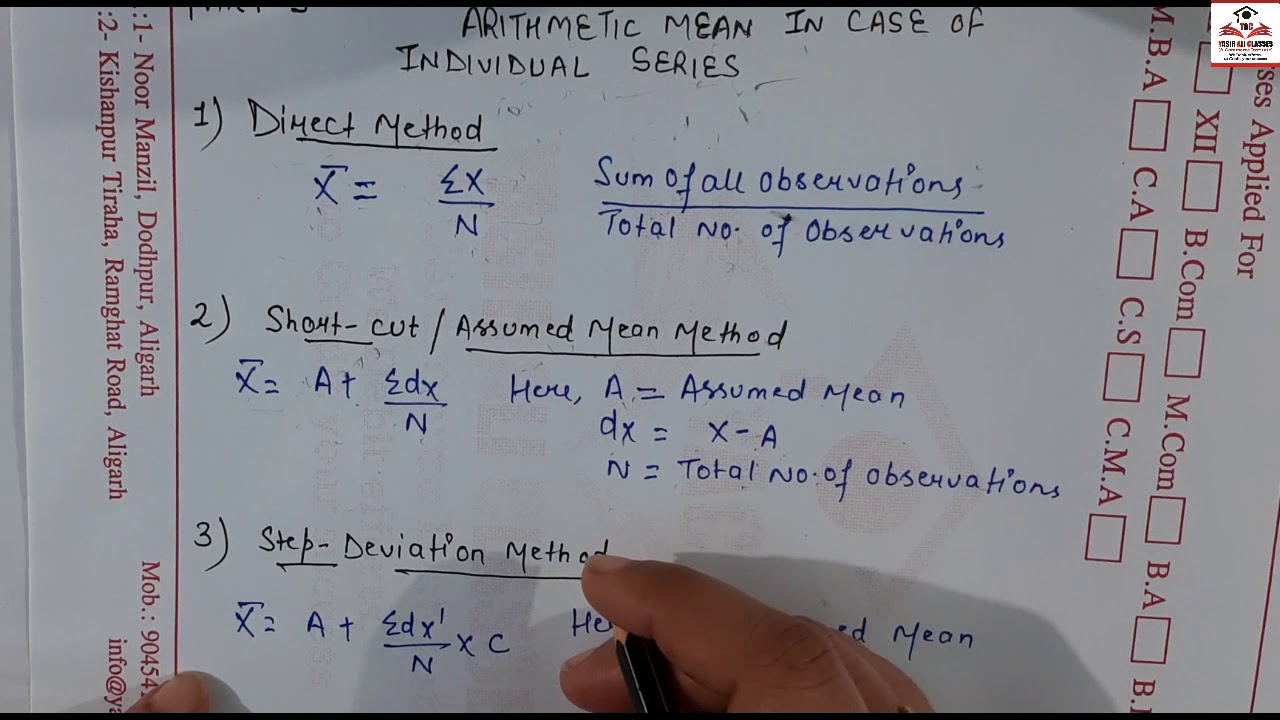 PART
ARITHMETIC MEAN IN CASE OF
INDIVIDUAL SERIES
1) Direct Method
X̄ = ΣX / N    Sum Of all Observations / Total No. of Observations
2) Short-cut / Assumed Mean Method
X̄ = A + Σdx / N    Here, A = Assumed Mean
dx = X - A
N = Total No. of Observations
3) Step-Deviation Method
X̄ = A + Σdx' / N x C    He ed Mean
:1- Noor Manzil, Dodhpur, Aligarh
:2- Kishanpur Tiraha, Ramghat Road, Aligarh
Mob.: 9045
info@y
ses Applied For
XII
B.Com
M.Com
B.A
M.B.A
C.A
C.S
C.M.A
YASIR ALI CLASSES